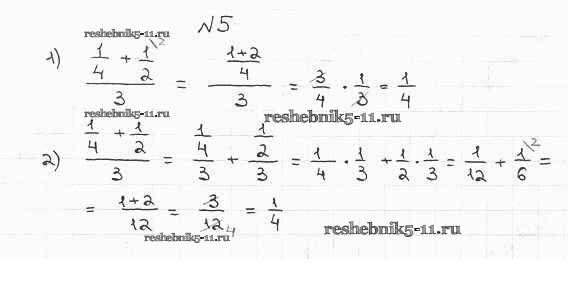 N5
reshebnik5-11.ru
1) (1/4 + 1/2\2)/3 = ((1+2)/4)/3 = 3/4 · 1/3 = 1/4
reshebnik5-11.ru reshebnik5-11.ru
2) (1/4 + 1/2)/3 = (1/4)/3 + (1/2)/3 = 1/4 · 1/3 + 1/2 · 1/3 = 1/12 + 1\2/6 =
= (1+2)/12 = 3/12 4 = 1/4
reshebnik5-11.ru reshebnik5-11.ru